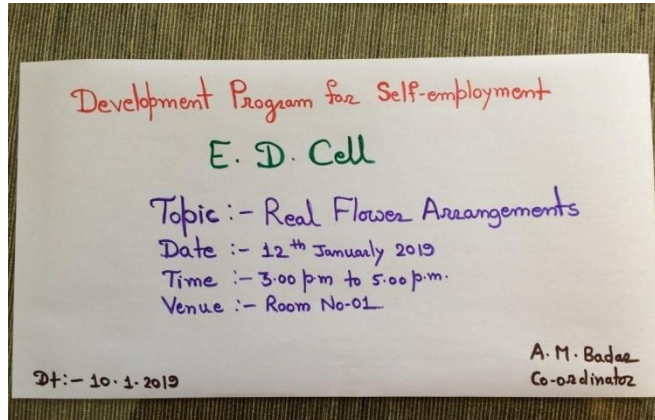 Development Program for Self-employment
E. D. Cell
Topic :- Real Flower Arrangements
Date :- 12th Januarly 2019
Time :- 3.00 p.m to 5.00 p.m.
Venue :- Room No-01
A. M. Badar
Co-ordinator
Dt:- 10.1.2019